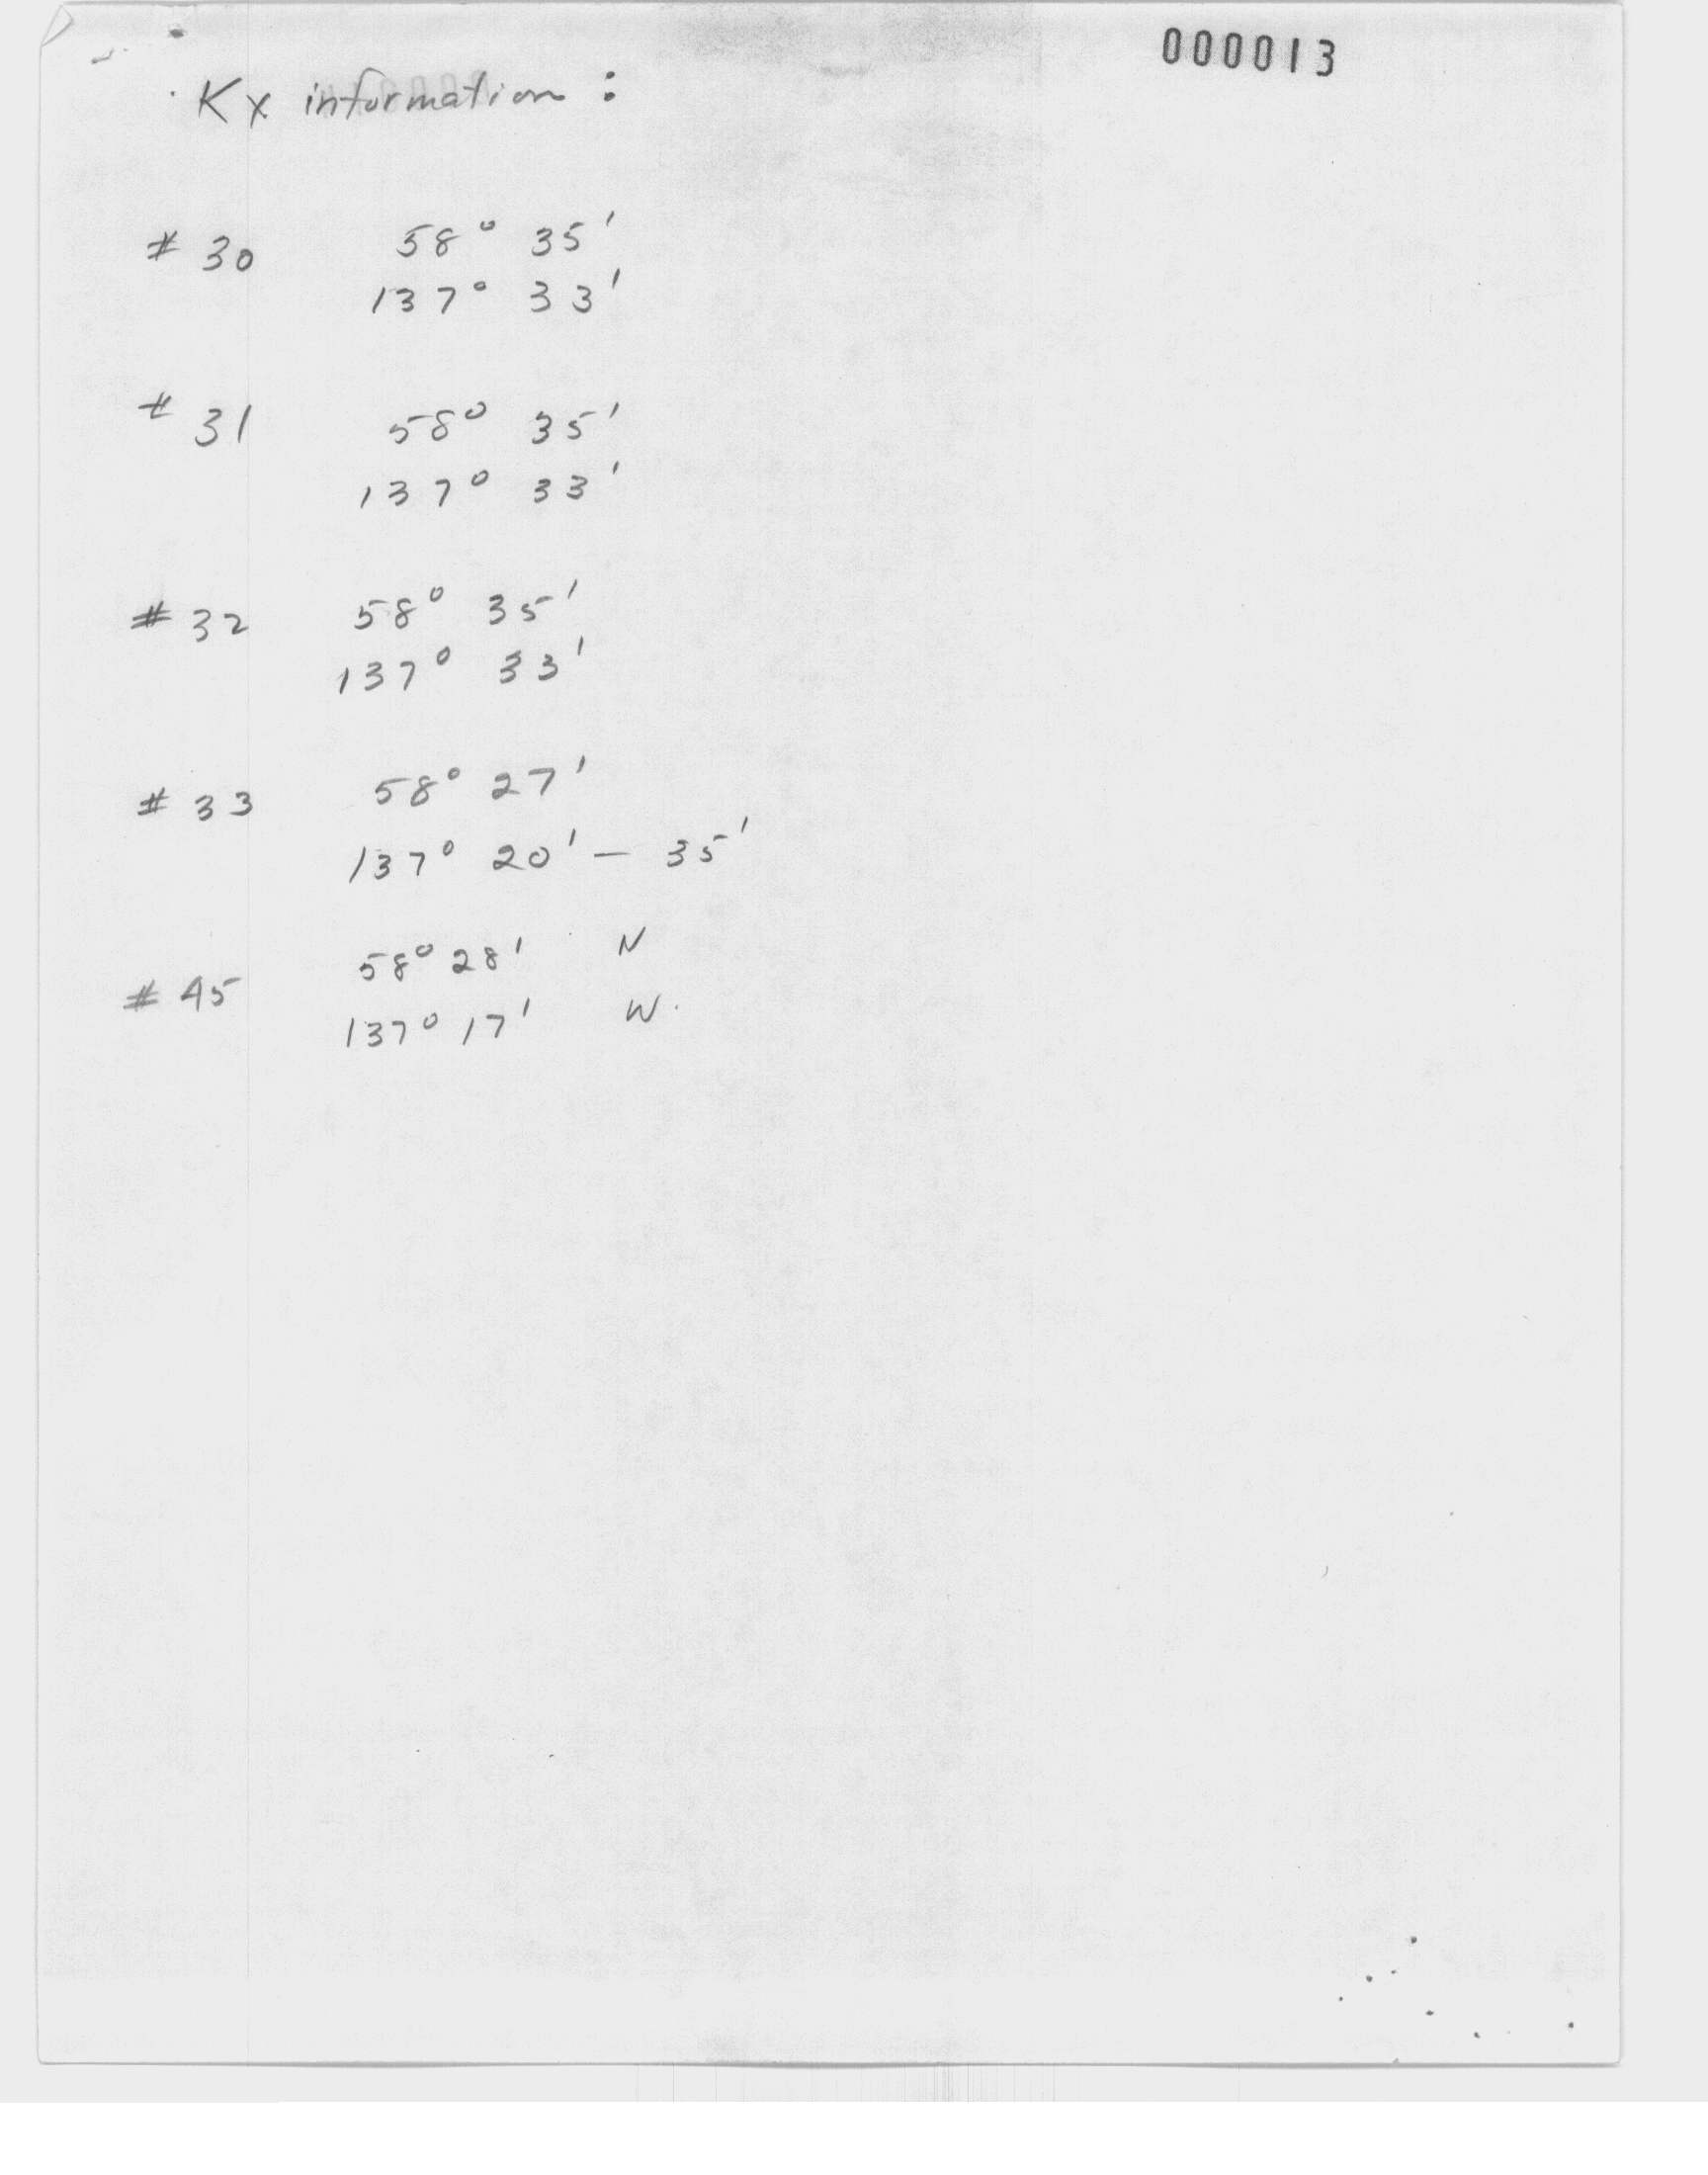 000013
Kx information :
# 30 58° 35'
137° 33'
# 31 58° 35'
137° 33'
# 32 58° 35'
137° 33'
# 33 58° 27'
137° 20' – 35'
# 45 58° 28' N
137° 17' W.